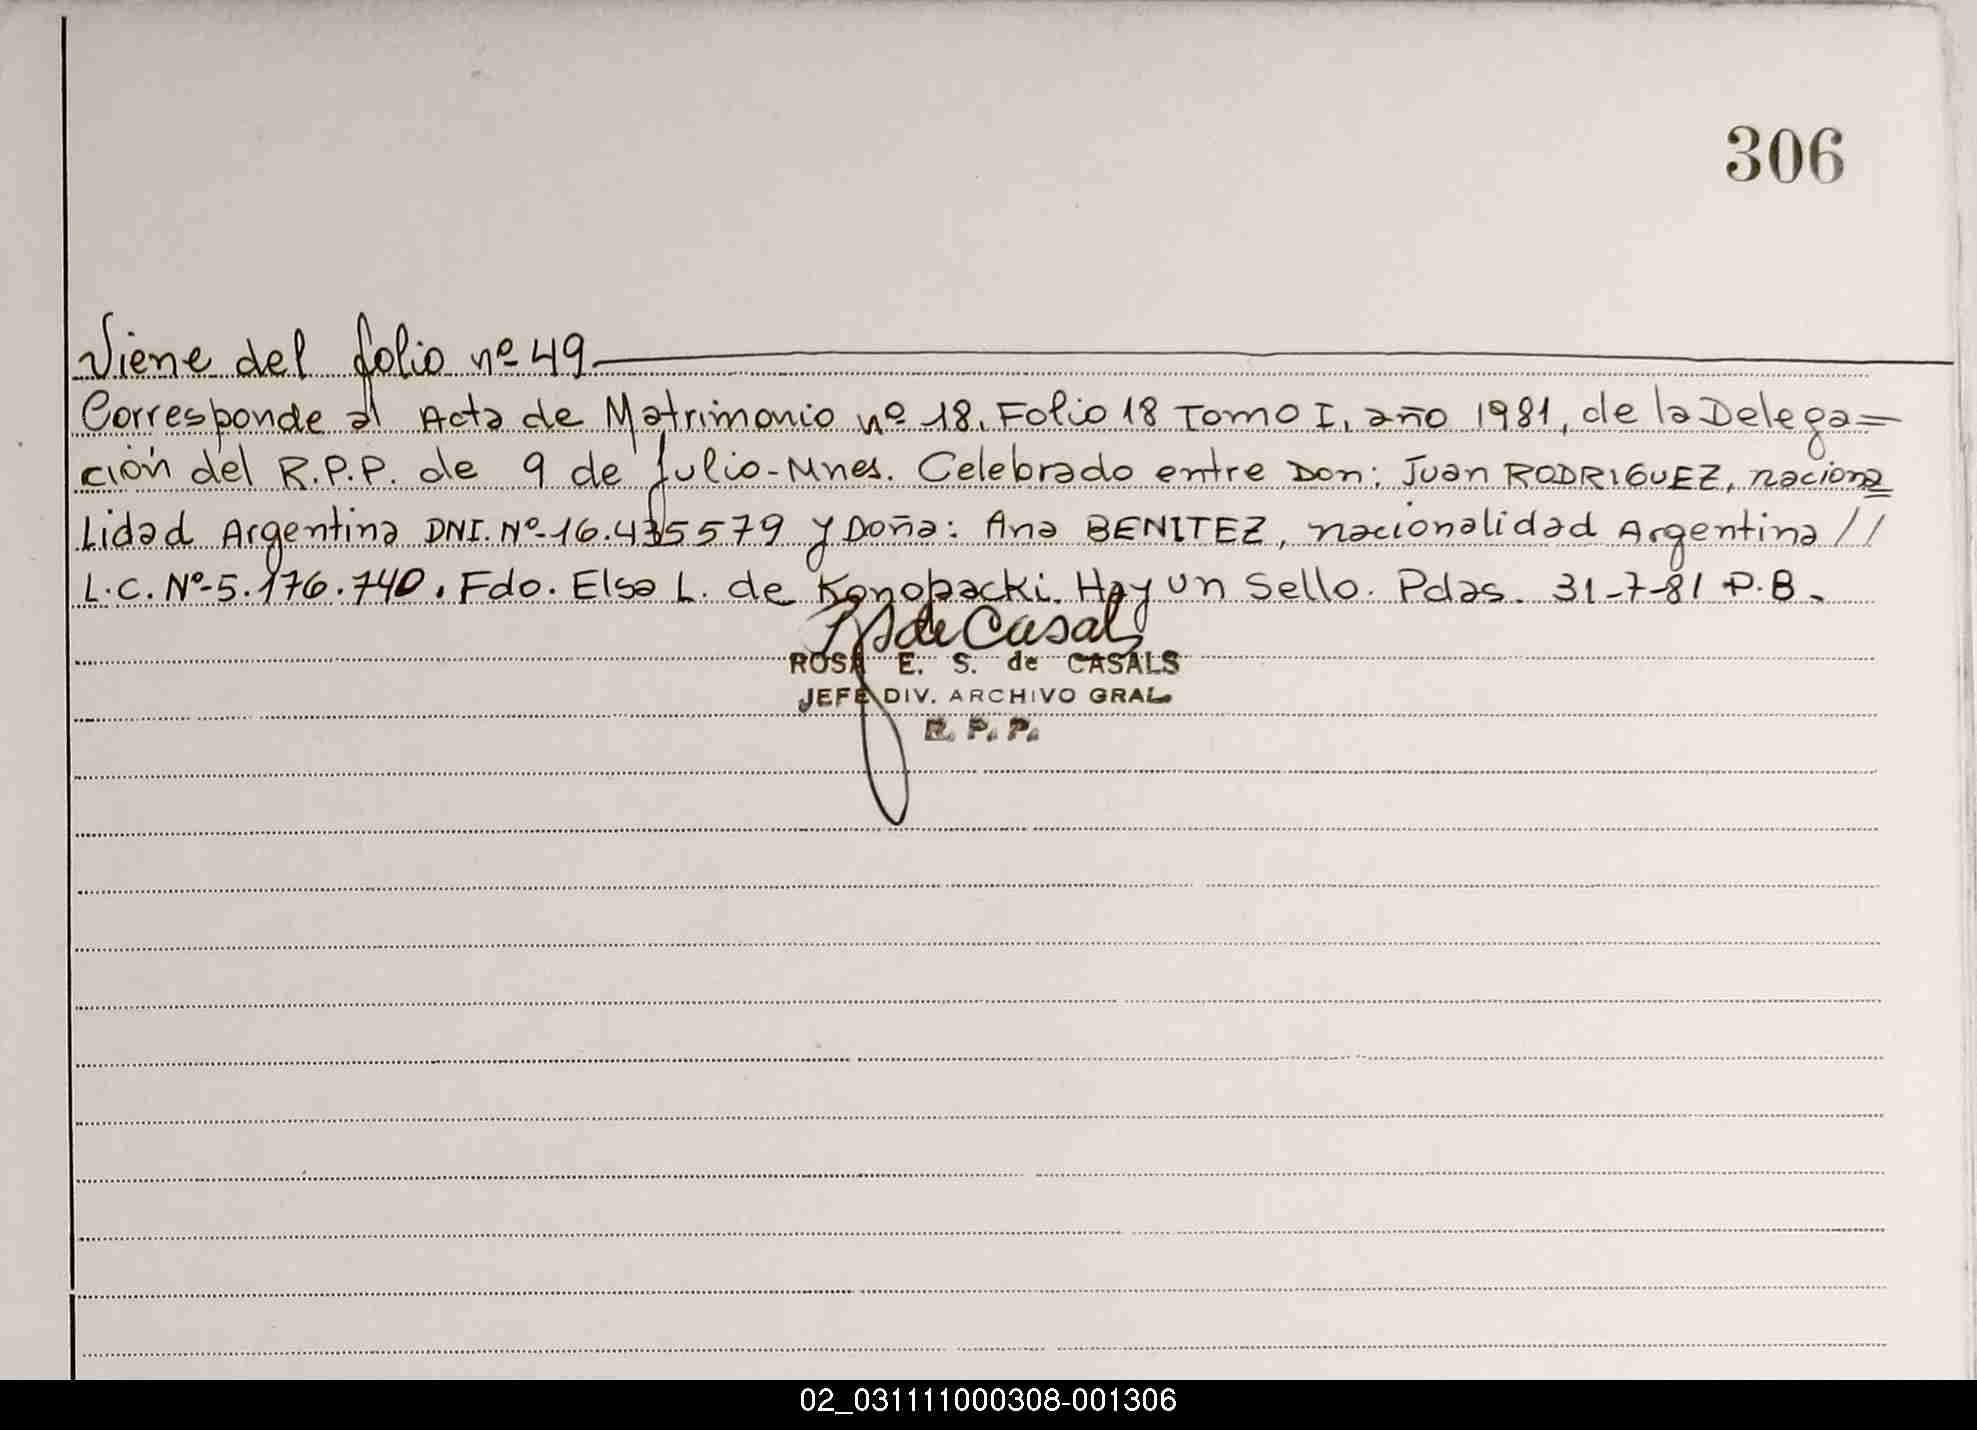 306
Viene del folio nº 49
Corresponde al Acta de Matrimonio nº 18. Folio 18 Tomo I, año 1981, de la Delega=
ción del R.P.P. de 9 de Julio-Mnes. Celebrado entre Don: Juan RODRIGUEZ, naciona
Lidad Argentina DNI. Nº-16.435579 y Doña: Ana BENITEZ, nacionalidad Argentina //
L.C. Nº-5.176.740. Fdo. Elsa L. de Konopacki. Hay un Sello. Pdas. 31-7-81 P.B.
de Casals
ROSA E. S. de CASALS
JEFE DIV. ARCHIVO GRAL
R. P. P.
02_031111000308-001306